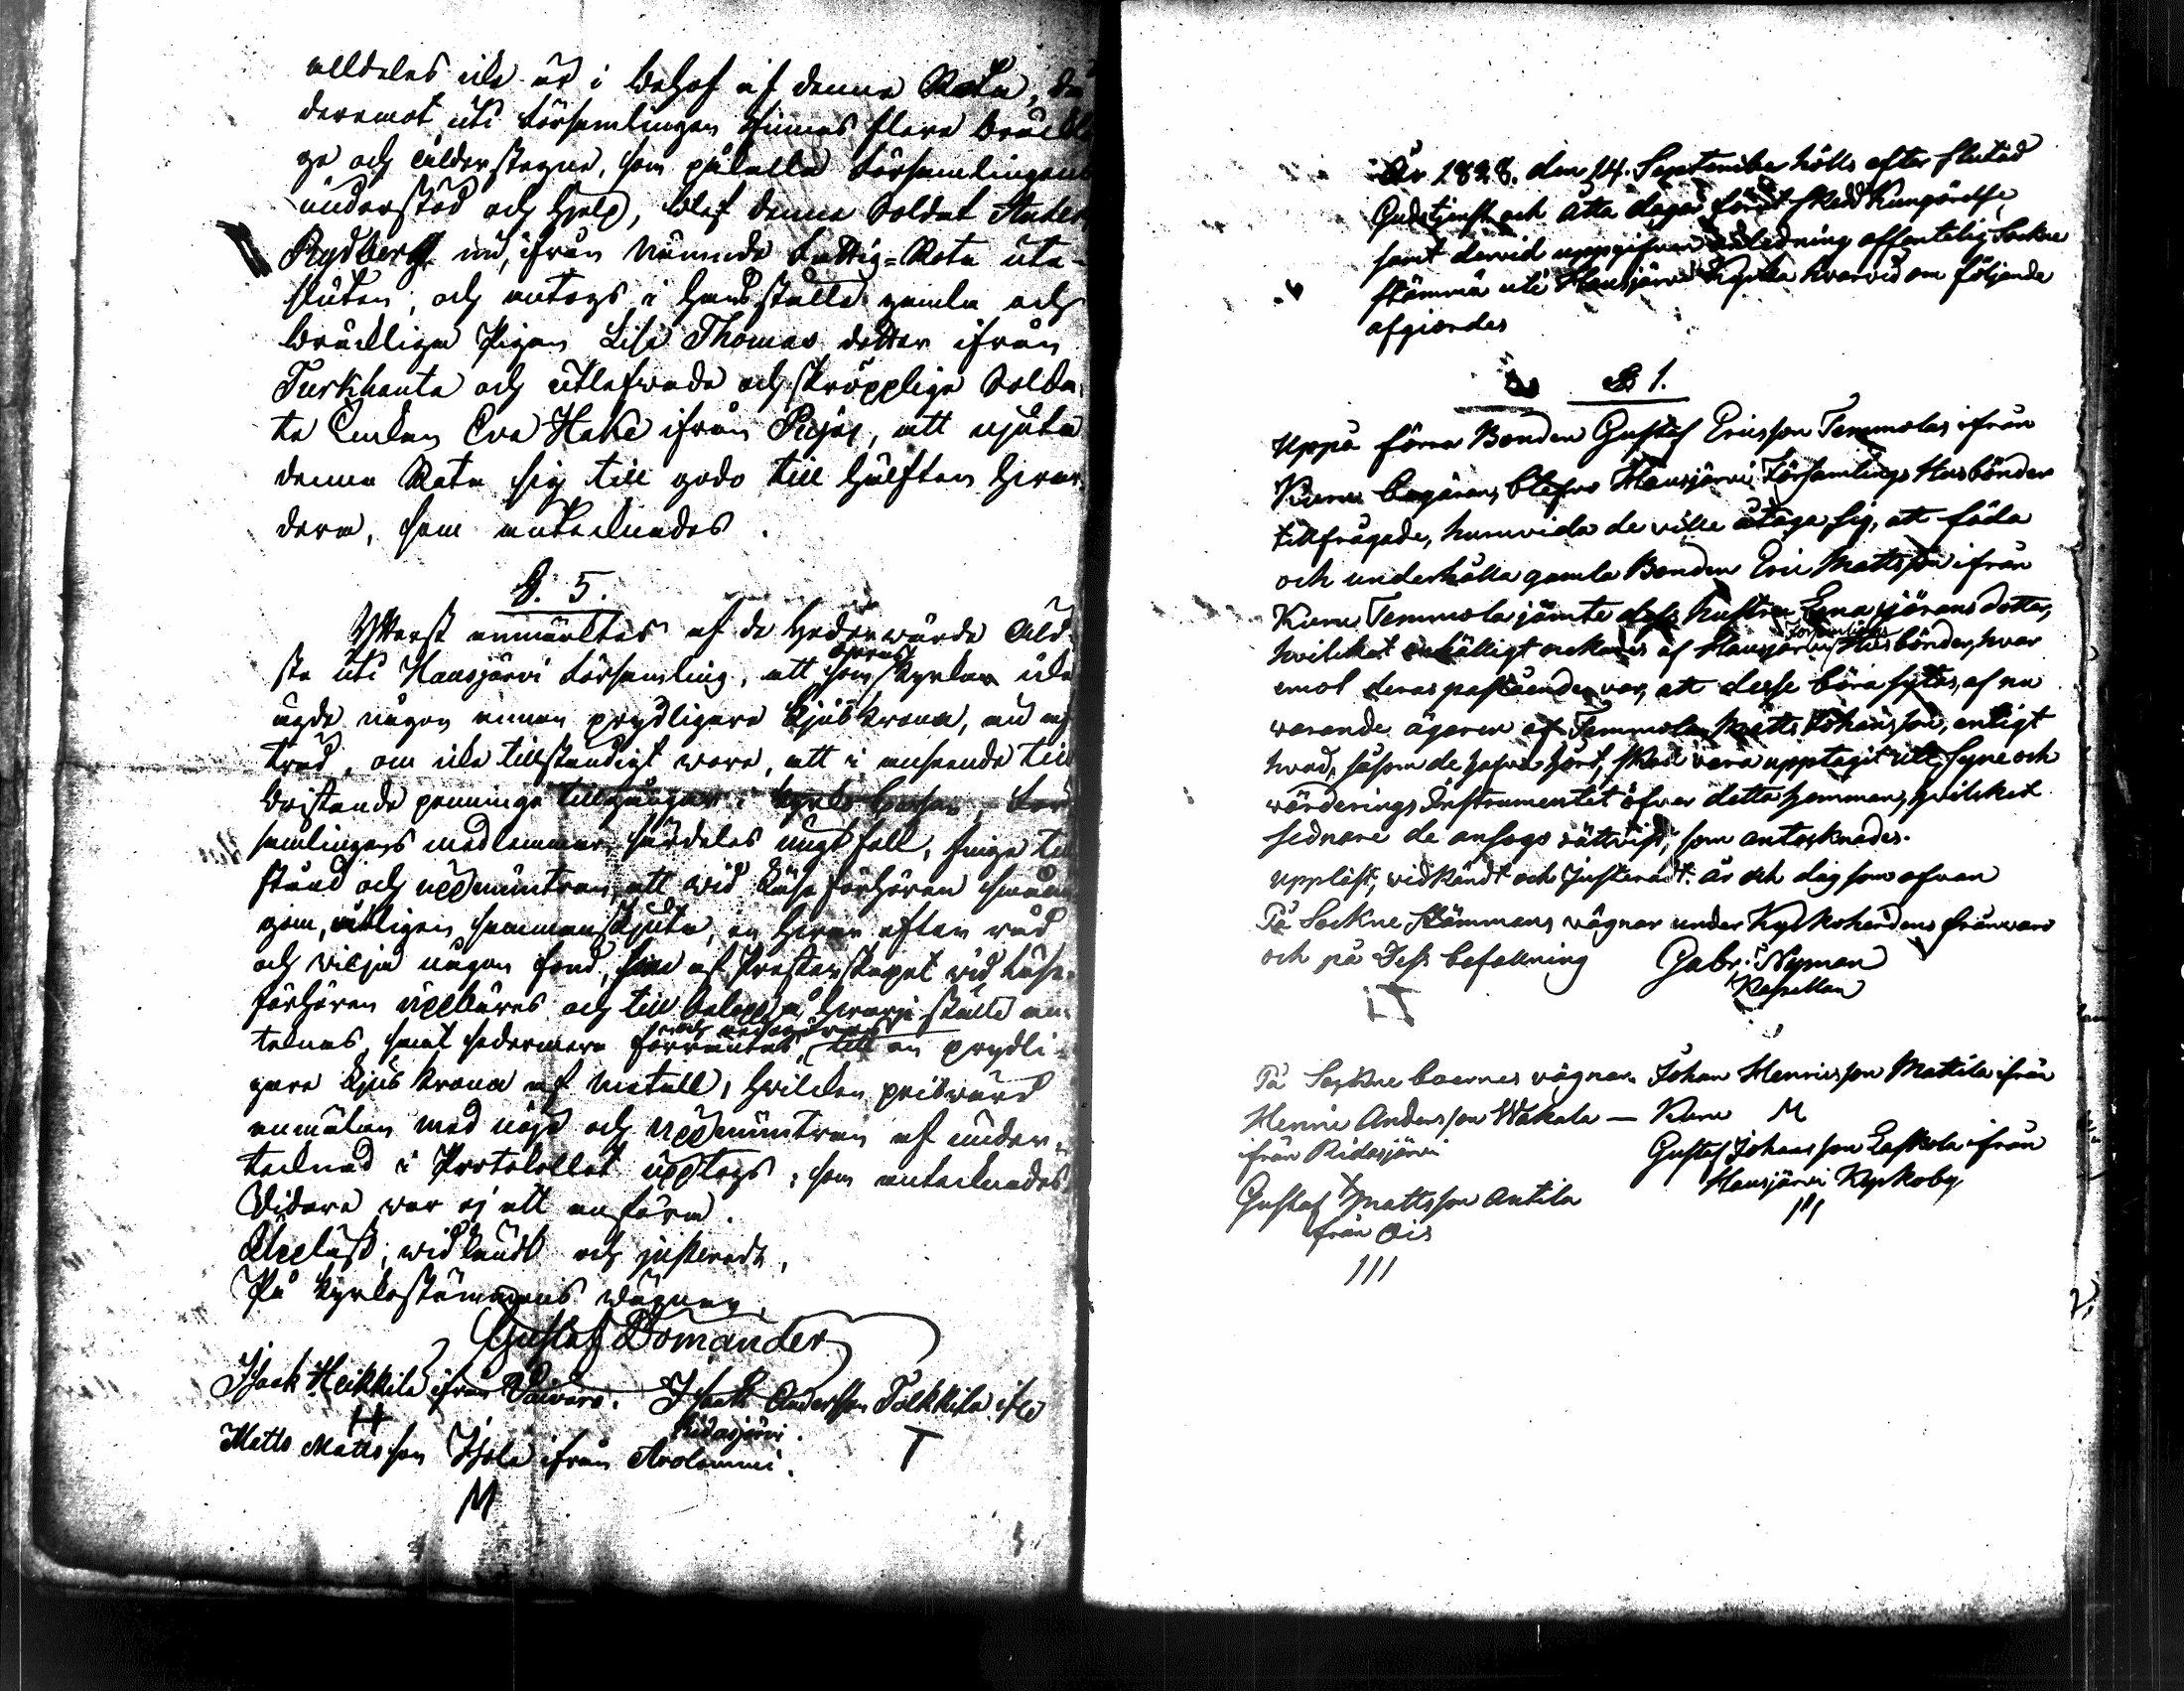 alldeles icke är i behof af denna Rota, då
deremot uti Församlingen finnas flera bräckli
ga och ålderstegne, som påkalla Församlingens
understöd och hjelp, blef denne Soldat Anders
Rydberg nu, ifrån nämnde Fattig-Rota ute-
sluten; och antogs i hans ställe gamla och
bräckliga Pigan Lisa Thomas dotter ifrån
Turkhauta och utlefwade och skröpplige Solda-
te Enkan Eva Hake ifrån, att njuta
denna Rota sig till godo till hälften hwar-
dera, som antecknades.
§. 5.
Ytterst anmältes af de hedervärde Äld-
ste uti Hausjärvi Församling, att som deras Kyrka icke
ägde någon annan prydligare Ljuskrona, än af
träd, om icke tillständigt wore, att i anseende till
bristande penninge tillgångar i Kyrko Cassan, För-
samlingens medlemmar, särdeles ungt folk, finge till
stånd och uppmuntran, att wid Läseförhören
sammanskjuta, en hwar efter råd
och wilja någon fond, som af Presterskapet wid Läse-
förhören uppbäres och till beloppet å hwarje ställe an-
tecknas, samt sedermera förräntas, till en prydli-
gare Ljuskrona af metall, hvilken prisvärd
anmälan med nöje och uppmuntran af under-
tecknad i Protokollet upptogs; som antecknades.
Vidare war ej att anföra.
Uppläst, widkändt och justeradt,
På Kyrkostämmans wägnar,
Gustaf Bomander
Isaak Heikkilä ifrån Vaivara. Isaak Andersson Tolkkila ifrå
H Ridasjärvi. T
Matts Mattsson Isola ifrån Arolammi.
M
År 1828. den 14. September hölls efter slutad
Gudstjenst och åtta dagar förut skedd Kungörelse,
samt dervid uppgifven anledning offentelig Sockne
stämma uti Hausjärvi Kyrka hvarvid om följande
afgiordes
§ 1.
Uppå förra Bonden Gustaf Ericsson Temmolas ifrån
Karu begäran, blefvo Hausjärvi Församlings Husbönder
tillfrågade, huruvida de ville åtaga sig, att föda
och underhålla gamla Bonden Eric Mattsson ifrån
Karu Temmola jämte dess hustru Lena Jöransdotter,
hvilket enhälligt nekades af Hausjärvi Församlings Husbönder, hvar
emot deras påstående var, att desse böra sytas, af nu
warande ägaren af Temmola Matts Johansson, enligt
hvad, såsom de hafva hört, skall vara upptagit uti Syne och
wärderings Instrumentet öfver detta hemman, hvilket
sednare de ansågo rättvist, som antecknades.
Uppläst, vidkändt och Justeradt. år och dag som ofvan
På Sockne Stämmans vägnar under Kyrkoherdens frånvaro
och på Dess befallning Gabr. Nyman
Kapellan
På Sockne boernes vägnar. Johan Henricsson Mattila ifrån
Henric Andersson Wäkelä — Karu M
ifrån Ridasjärvi
Gustaf Johansson Laskola ifrån
Hausjärvi Kyrkoby
Gustaf Mattsson Antila
från Ois
III